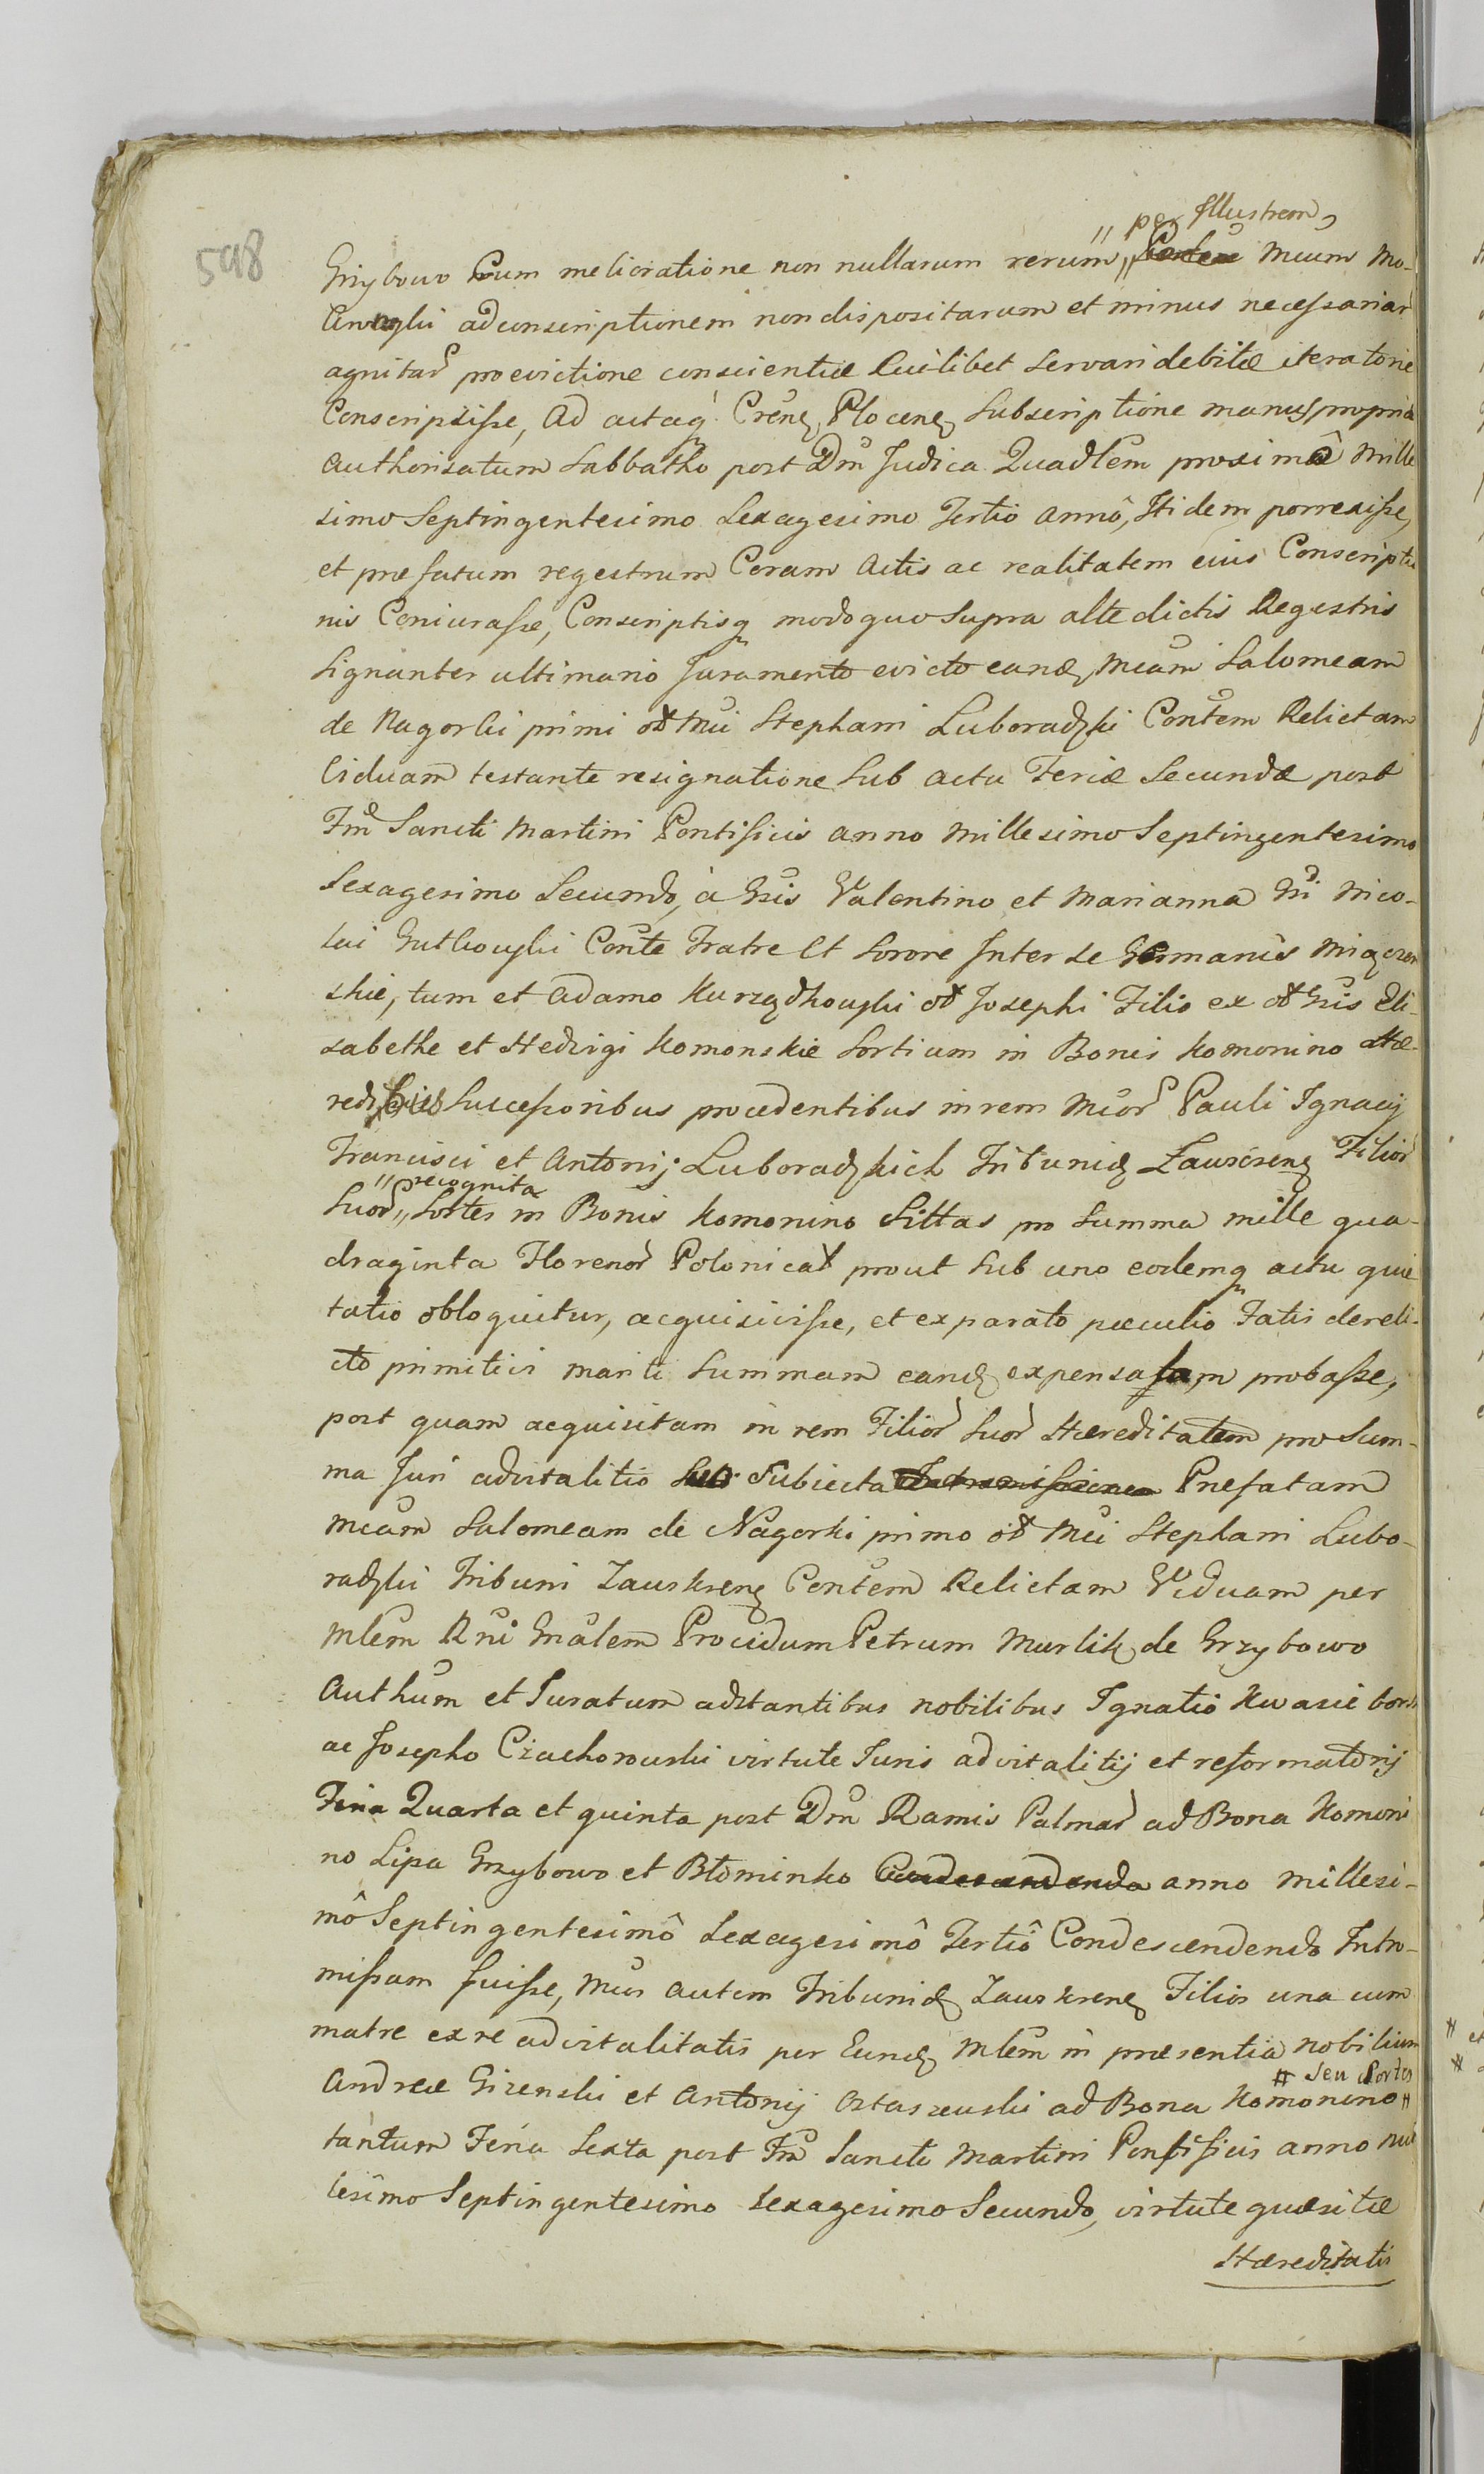 598
" per Illustrem
Grzybowo Cum melioratione non nullarum rerum " Mcum Mo-
ad conscriptionem non dispositarum et minus necessariar
agnitar pro evictione conscientiæ Cuilibet servari debitæ iteratorie
Conscripsisse, Ad actaq Crenę Plocenę Subscriptione manus propriæ
authorisatum Sabbatho post Dm̃ Judica Quadlẽm proximô Mille
simo Septingentesimo Sexagesimo Tertio annô, Itidem porrexisse,
et præfatum regestrum Coram Actis ac realitatem eius Conscriptio
nis Coniurasse, Conscriptisq modo quo Supra alte dictis Regestris
Signanter ultimario Juramento evicto eandę Mcam Salomeam
de Nagorki primi oł Mci Stephani Luboradzki Contẽm Relictam
Viduam testante resignatione Sub actu Feriæ Secundæ post
Fm̃ Sancti Martini Pontificis anno Millesimo Septingentesimo
Sexagesimo Secundo, à Gsis Valentino et Marianna Gñi Nico-
lai Gutkowski Conte Fratre et Sorore Inter Se Germanis
skie, tum et Adamo Kurządkowski oł Josephi Filio ex oł Gsis Eli-
sabethe et Hedvigi Komonskie Sortium in Bonis Komonino Hæ-
redibus Successoribus procedentibus in rem Mcor Pauli Ignacij
Francisci et Antonij Luboradzkich Tribunidę Zawscrenę Filior
" recognita
Suor " Sortes in Bonis Komonino Sittas pro Summa mille qua-
draginta Florenor Polonical prout Sub uno eodemq actu quie
tatio obloquitur, acquisivisse, et ex parato peculio Fatis dereli-
cto primitivi mariti Summam eandę expensatam probasse,
post quam acquisitam in rem Filior Suor Hæreditatem pro Sum-
ma Juri advitalitio Subiecta Intromissionem Præfatam
Mcam Salomeam de Nagorki primo oł Mci Stephani Lubo-
radzki Tribuni Zawskrenę Contem Relictam Viduam per
Mlẽm Rñi Gnãlem Providum Petrum Murlik de Grzybowo
Authum et Juratum adstantibus nobilibus Ignatio Kwasiebor
ac Josepho Czachorowski virtute Juris advitalitij et reformatorij
Feria Quarta et quinta post Dm̃ Ramis Palmar ad Bona Komoni
no Lipa Grzybowo et Błominko Condescendendo anno Millesi-
mô Septingentesimô Sexagesimô Tertiô Condescendendo Intro-
missam fuisse, Mcos autem Tribunidę Zawskrenę Filios una cum
matre ex re advitalitatis per Eundę Mlẽm in præsentia nobilium
# seu Sortes
Andreæ Gizenski et Antonij Ostaszewski ad Bona Komonino #
tantum Feria Sexta post Fm̃ Sancti Martini Pontificis anno Mil
lesimo Septingentesimo Sexagesimo Secundo, virtute quæsitæ
Hæreditatis